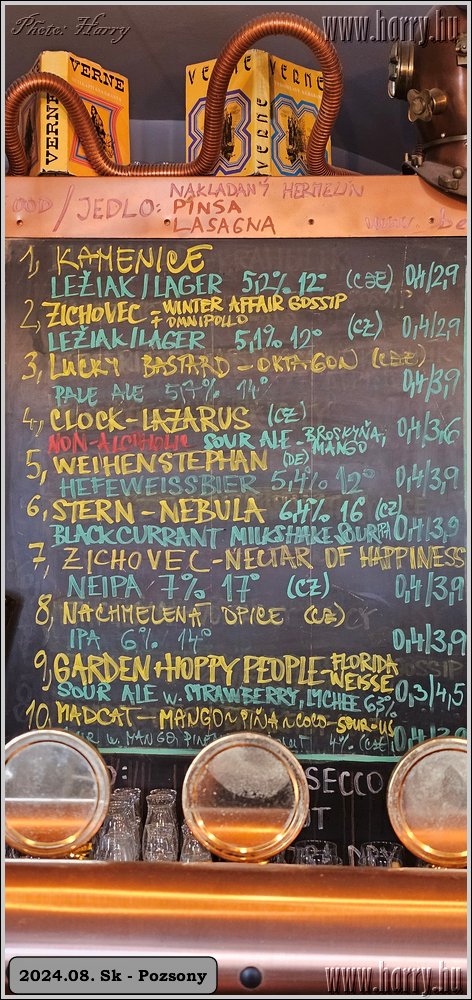 Photo: Harry
www.harry.hu
VERNE
VERNE
VERNE
VERNE
VERNE
FOOD/JEDLO: NAKLADANÝ HERMELÍN
PINSA
LASAGNA
1, KAMENICE
LEŽIAK/LAGER 5,2% 12° (CZE) 0,4/2,9
2, ZICHOVEC - WINTER AFFAIR GOSSIP
+ OMNIPOLLO
LEŽIAK/LAGER 5,1% 12° (CZ) 0,4/2,9
3, LUCKY BASTARD - OKTAGON (CZE)
PALE ALE 5,7% 14° 0,4/3,9
4, CLOCK - LAZARUS (CZ)
NON-ALCOHOLIC SOUR ALE - BROSKYŇA, MANGO 0,4/3,6
5, WEIHENSTEPHAN (DE)
HEFEWEISSBIER 5,4% 12° 0,4/3,9
6, STERN - NEBULA 6,4% 16° (CZ)
BLACKCURRANT MILKSHAKE SOUR IPA 0,4/3,9
7, ZICHOVEC - NECTAR OF HAPPINESS
NEIPA 7% 17° (CZ) 0,4/3,9
8, NACHMELENÁ OPICE (CZ)
IPA 6% 14° 0,4/3,9
9, GARDEN + HOPPY PEOPLE - FLORIDA WEISSE
SOUR ALE w. STRAWBERRY, LYCHEE 6,3% 0,3/4,5
10, MADCAT - MANGO ~ PIŇA ~ COLO - SOUR - US
w. MANGO, 4% (CZE) 0,4/3,9
SECCO
2024.08. Sk - Pozsony
www.harry.hu